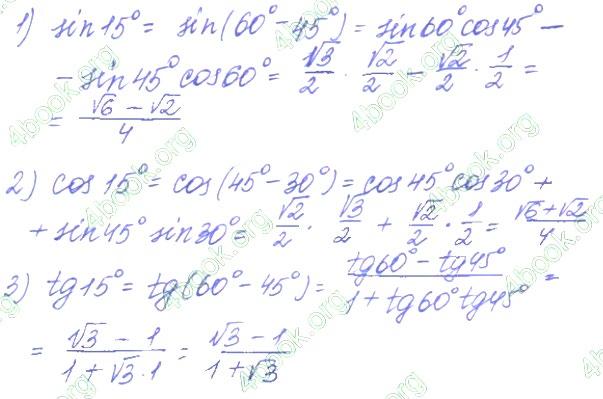 1) sin15° = sin(60° - 45°) = sin60°cos45° -
- sin45°cos60° = √3/2 · √2/2 - √2/2 · 1/2 =
= (√6 - √2)/4
2) cos15° = cos(45° - 30°) = cos45°cos30° +
+ sin45° sin30° = √2/2 · √3/2 + √2/2 · 1/2 = (√6+√2)/4
3) tg15° = tg(60° - 45°) = (tg60° - tg45°)/(1 + tg60°tg45°) =
= (√3 - 1)/(1 + √3·1) = (√3 - 1)/(1 + √3)
4book.org